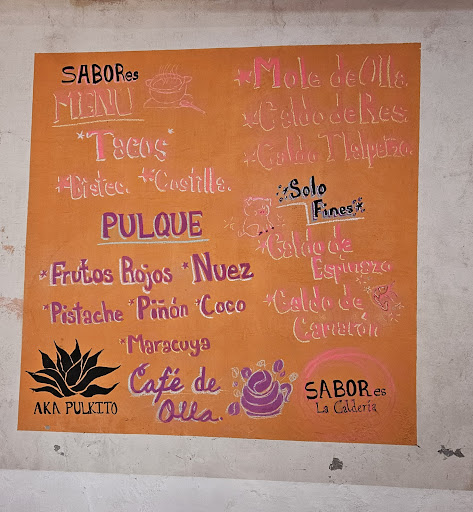 SABORes
MENU
*Tacos*
*Bistec. *Costilla.
PULQUE
*Frutos Rojos *Nuez
*Pistache *Piñón *Coco
*Maracuya
Café de
Olla.
AKA PULKITO
*Mole de Olla.
*Caldo de Res.
*Caldo Tlalpeño.
*Solo
Fines*
*Caldo de
Espinazo
*Caldo de
Camarón
SABORes
La Calderia